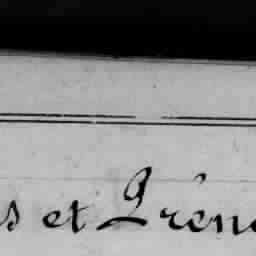 s et Préno